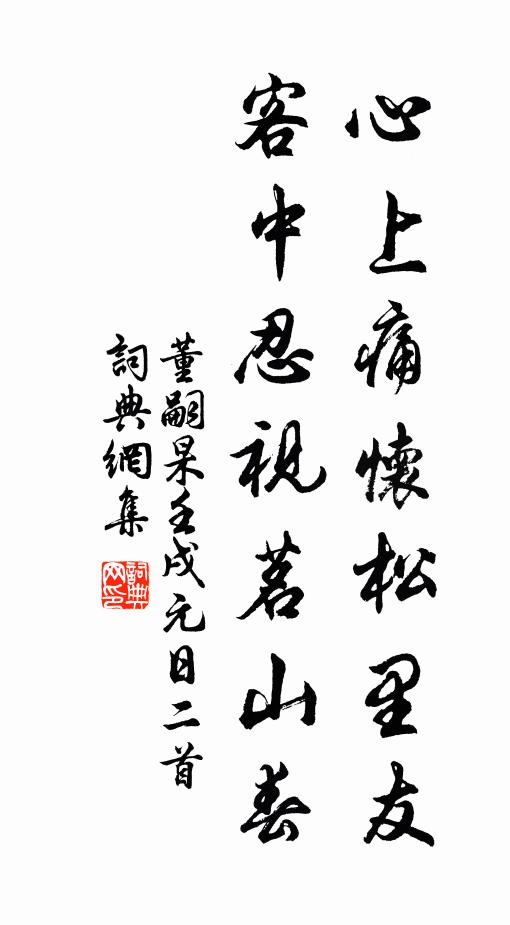 心上痛懷松里友
客中忍視茗山春
董嗣杲壬戌元日二首
詞典網集
詞典網印